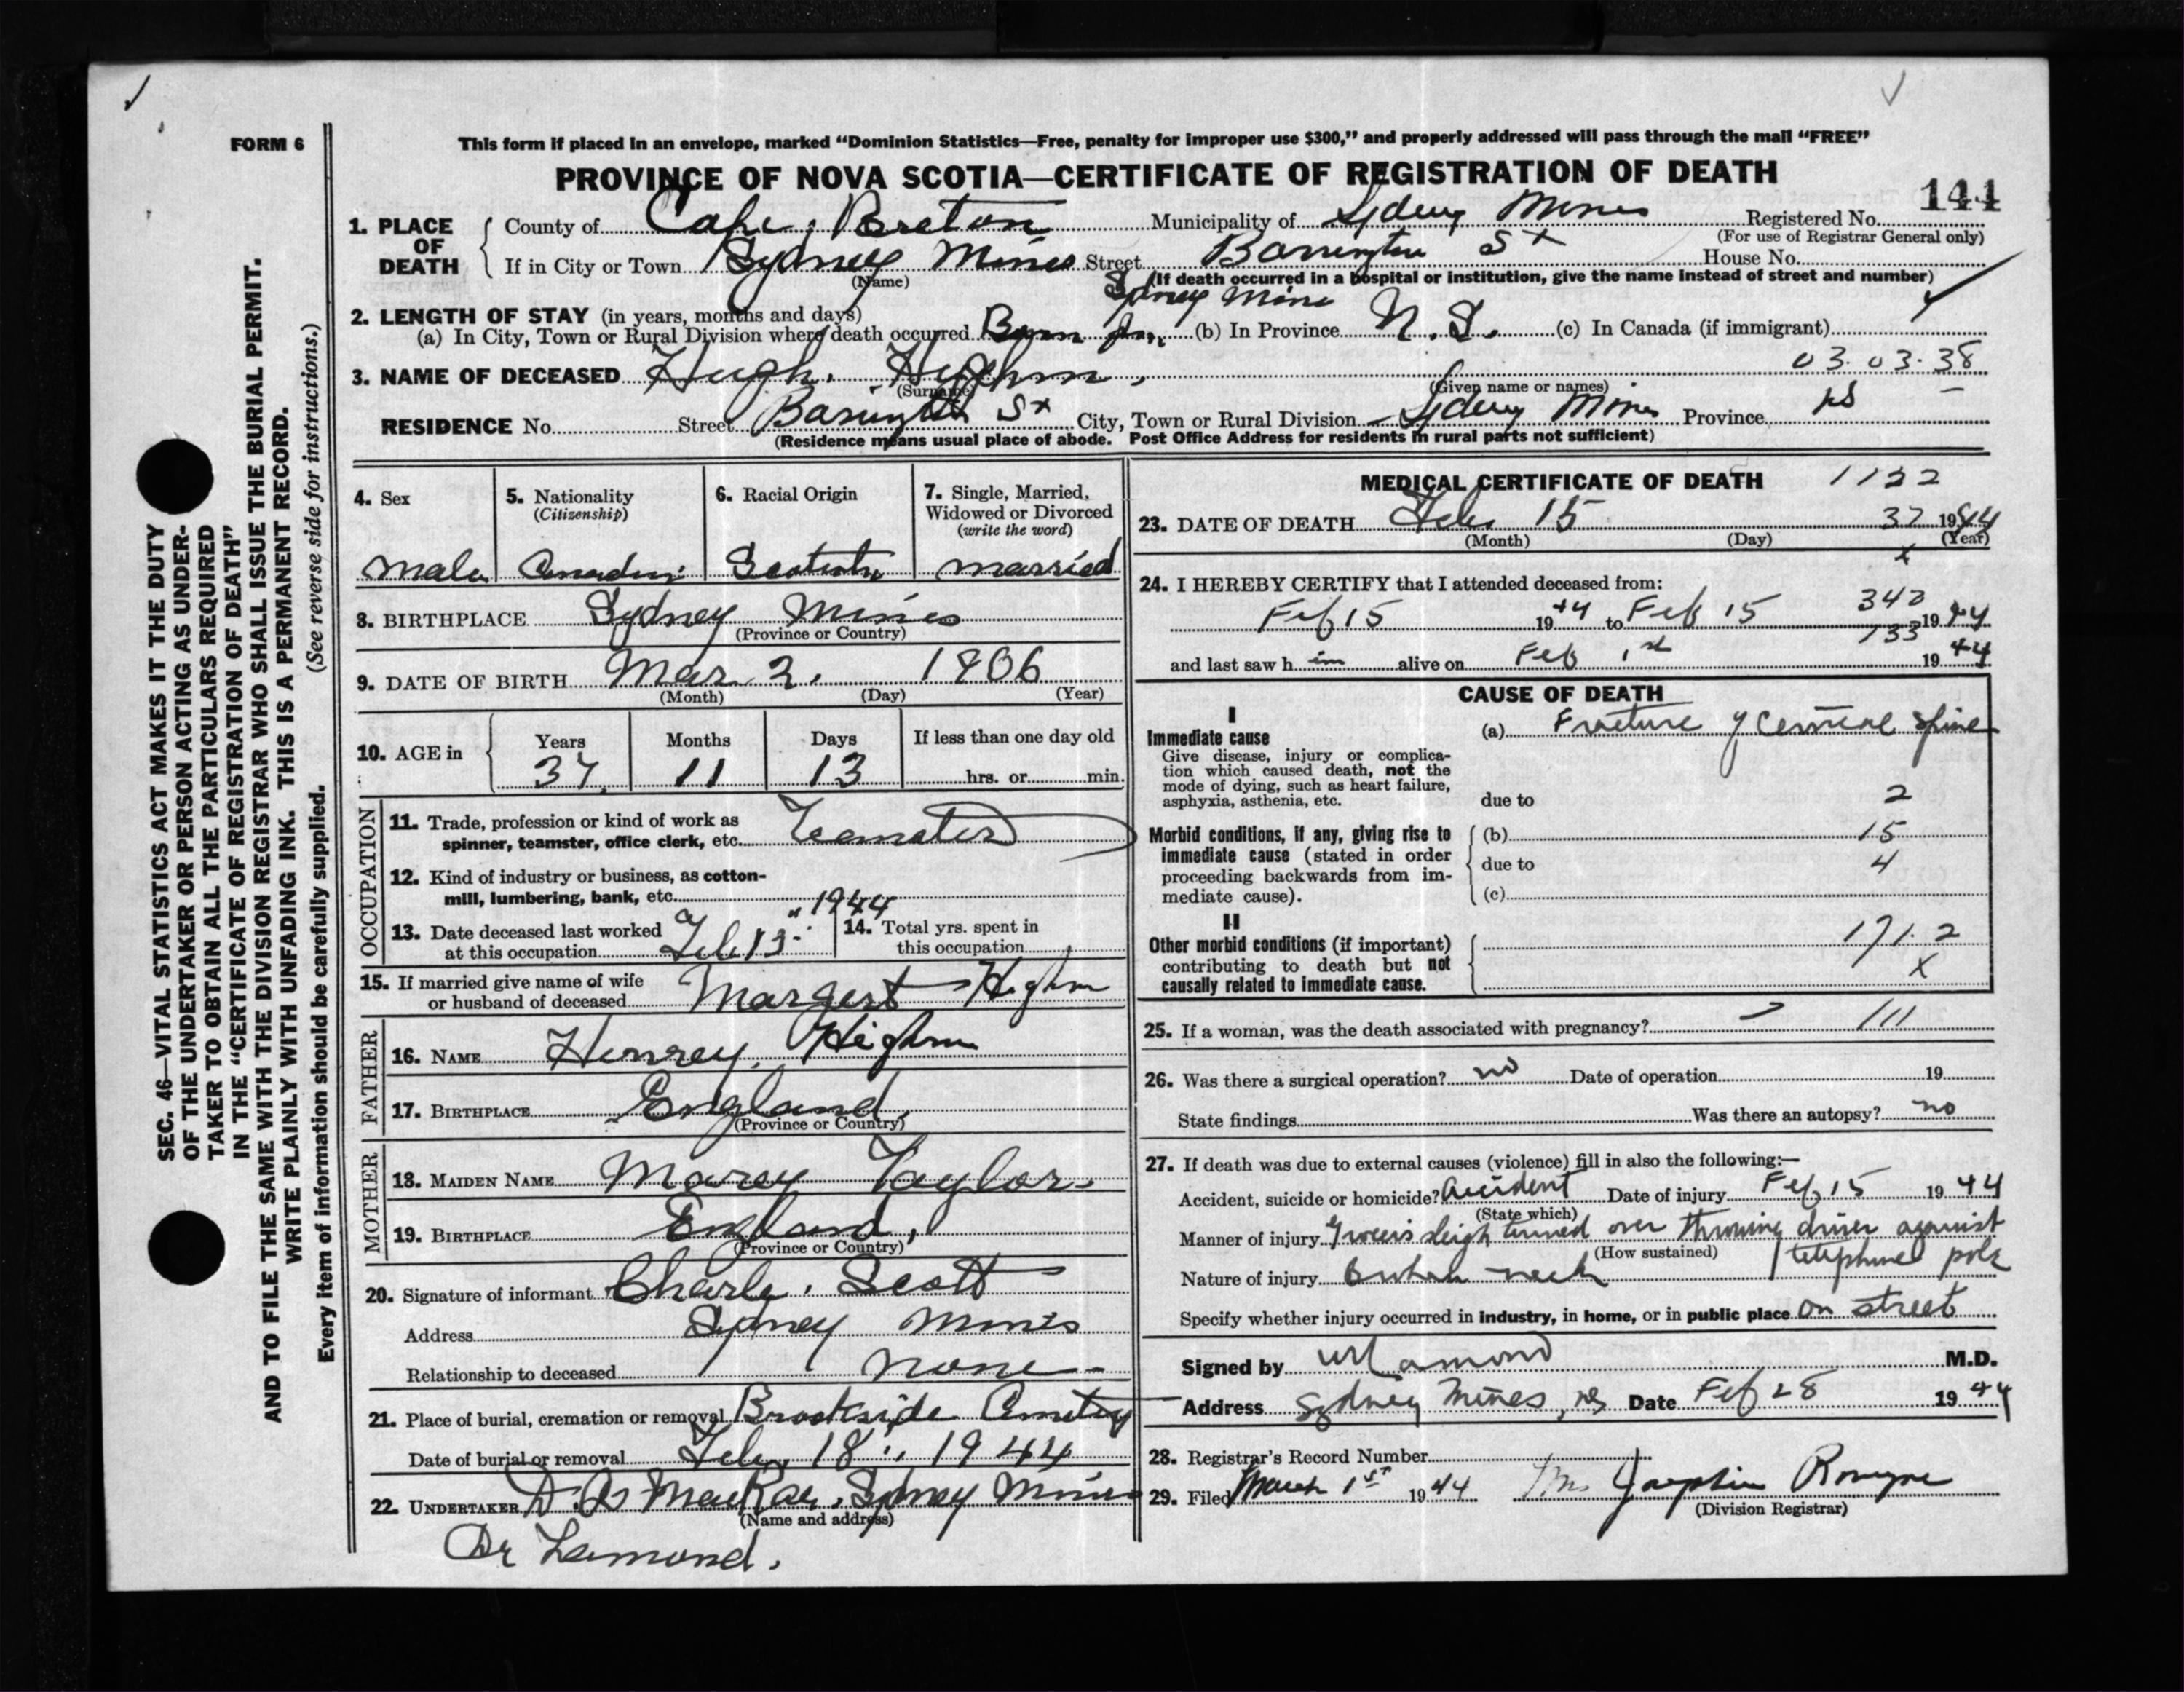 FORM 6
This form if placed in an envelope, marked "Dominion Statistics—Free, penalty for improper use $300," and properly addressed will pass through the mail "FREE"
PROVINCE OF NOVA SCOTIA—CERTIFICATE OF REGISTRATION OF DEATH
144
1. PLACE OF DEATH
County of Cape Breton Municipality of Sydney Mines Registered No.
(For use of Registrar General only)
If in City or Town Sydney Mines Street Barrington St House No.
(Name) (If death occurred in a hospital or institution, give the name instead of street and number)
Sydney Mines
2. LENGTH OF STAY (in years, months and days)
(a) In City, Town or Rural Division where death occurred Born (b) In Province N.S. (c) In Canada (if immigrant)
03.03.38
3. NAME OF DECEASED Hugh
(Surname) (Given name or names)
RESIDENCE No. Street Barrington St City, Town or Rural Division Sydney Mines Province NS
(Residence means usual place of abode. Post Office Address for residents in rural parts not sufficient)
4. Sex
male
5. Nationality
(Citizenship)
Canadian
6. Racial Origin
7. Single, Married, Widowed or Divorced
(write the word)
married
8. BIRTHPLACE Sydney Mines
(Province or Country)
9. DATE OF BIRTH Mar 2, 1906
(Month) (Day) (Year)
10. AGE in Years Months Days If less than one day old
37 11 13 hrs. or min.
OCCUPATION
11. Trade, profession or kind of work as spinner, teamster, office clerk, etc. Teamster
12. Kind of industry or business, as cotton-mill, lumbering, bank, etc.
13. Date deceased last worked at this occupation Feb 13 1944
14. Total yrs. spent in this occupation
15. If married give name of wife or husband of deceased Margert
FATHER
16. NAME Henrey
17. BIRTHPLACE England
(Province or Country)
MOTHER
18. MAIDEN NAME Marey Taylor
19. BIRTHPLACE England
(Province or Country)
20. Signature of informant Charle Scott
Address Sydney Mines
Relationship to deceased none
21. Place of burial, cremation or removal Brookside Cemetey
Date of burial or removal Feb. 18, 1944
22. UNDERTAKER MacRae, Sydney Mines
(Name and address)
Dr Lamond.
MEDICAL CERTIFICATE OF DEATH 1132
23. DATE OF DEATH Feb 15 37 1944
(Month) (Day) (Year)
x
24. I HEREBY CERTIFY that I attended deceased from:
342
Feb 15 1944 to Feb 15 1944
133
and last saw him alive on Feb 1st 1944
CAUSE OF DEATH
I
Immediate cause
Give disease, injury or complication which caused death, not the mode of dying, such as heart failure, asphyxia, asthenia, etc.
(a) Fracture of cervical spine
due to 2
Morbid conditions, if any, giving rise to immediate cause (stated in order proceeding backwards from immediate cause).
(b) 15
due to 4
(c)
II
Other morbid conditions (if important) contributing to death but not causally related to immediate cause.
171.2
X
25. If a woman, was the death associated with pregnancy? 111
26. Was there a surgical operation? no Date of operation 19
State findings Was there an autopsy? no
27. If death was due to external causes (violence) fill in also the following:—
Accident, suicide or homicide? Accident Date of injury Feb 15 1944
(State which)
Manner of injury sleigh turned over throwing driver against telephone pole
(How sustained)
Nature of injury Broken neck
Specify whether injury occurred in industry, in home, or in public place on street
Signed by Lamond M.D.
Address Sydney Mines, NS Date Feb 28 1944
28. Registrar's Record Number
29. Filed March 1st 1944 Mrs Josephine
(Division Registrar)
SEC. 46—VITAL STATISTICS ACT MAKES IT THE DUTY
OF THE UNDERTAKER OR PERSON ACTING AS UNDER-
TAKER TO OBTAIN ALL THE PARTICULARS REQUIRED
IN THE "CERTIFICATE OF REGISTRATION OF DEATH"
AND TO FILE THE SAME WITH THE DIVISION REGISTRAR WHO SHALL ISSUE THE BURIAL PERMIT.
WRITE PLAINLY WITH UNFADING INK. THIS IS A PERMANENT RECORD.
Every item of information should be carefully supplied. (See reverse side for instructions.)